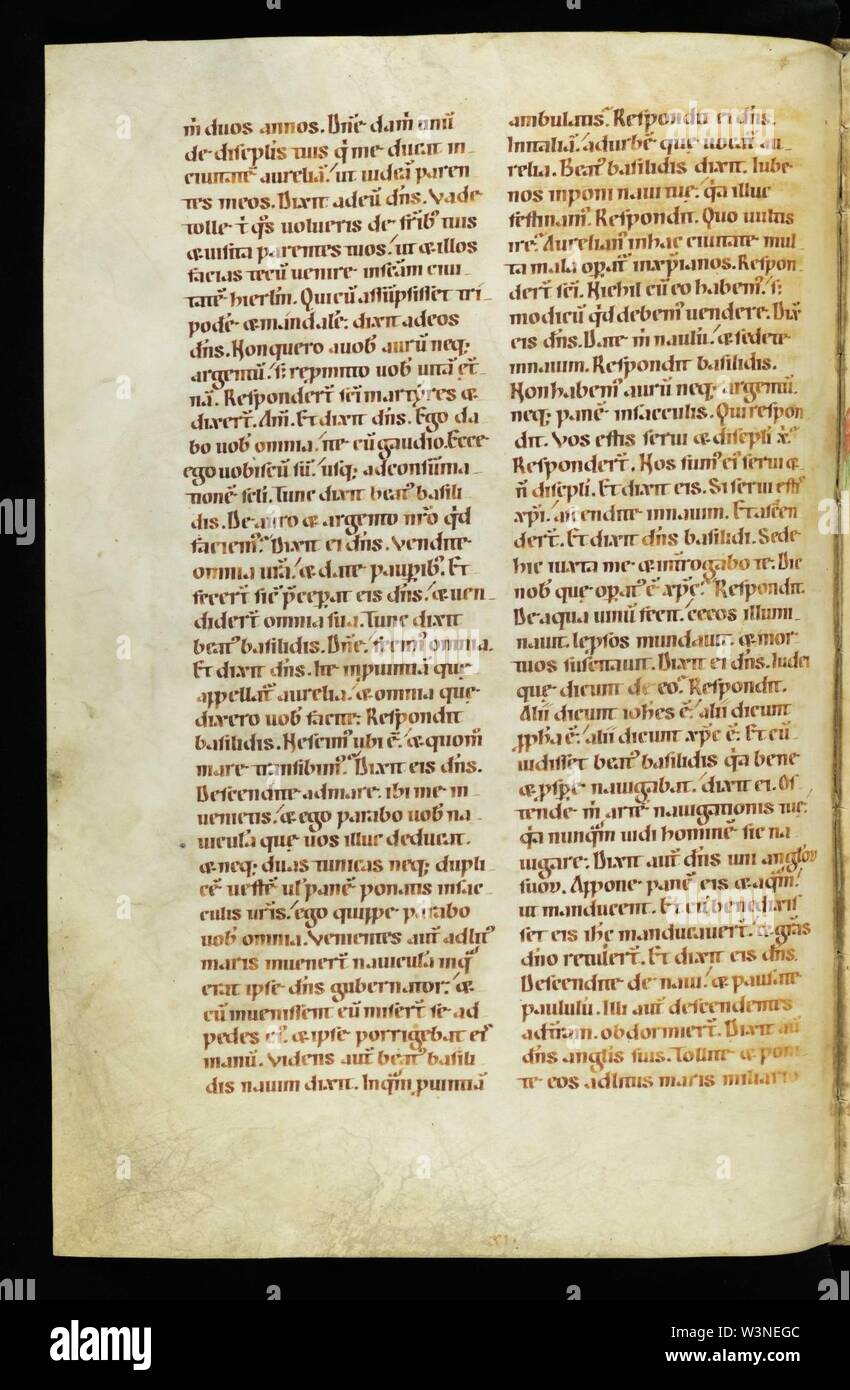 m̄ duos annos. Dn̄e da m̄ unū
de discipl̄is tuis q̄ me ducat in
ciuitatē aureliā. ut uideā paren
tes meos. Dixit ad eū dn̄s. Vade
tolle & q̄s uolueris de fr̄ib; tuis
& uisita parentes tuos. ut & illos
facias tecū uenire in sc̄am ciui
tatē hierl̄m. Qui cū assūpsisset tri
podē & mandalē. dixit ad eos
dn̄s. Non quero a uob̄ aurū neq;
argentū. s; repmitto uob̄ uitā et̄
nā. Responder̄t sc̄i martyres &
dixer̄t. Am̄. Et dixit dn̄s. Ego da
bo uob̄ omnia. ite cū gaudio. Ecce
ego uobiscū sū. usq; ad consūma
tionē sc̄li. Tunc dixit beat᷒ basili
dis. De auro & argento nr̄o q̄d
faciem᷒. Dixit ei dn̄s. Vendite
omnia ur̄a. & date pauꝑib;. Et
fecer̄t sic p̄cepat eis dn̄s. & uen
dider̄t omnia sua. Tunc dixit
beat᷒ basilidis. Dn̄e. fecim᷒ omnia.
Et dixit dn̄s. Ite in puintiā que
appellat̄ aurelia. & omnia que
dixero uob̄ facite. Respondit
basilidis. Nescim᷒ ubi ē. & quom̄
mare transibim᷒. Dixit eis dn̄s.
Descendite ad mare. ibi me in
uenietis. & ego parabo uob̄ na
uiculā que uos illuc deducat.
& neq; duas tunicas neq; dupli
cē uestē ul̄ panē ponatis in sac
culis ur̄is. ego quippe parabo
uob̄ omnia. Venientes aut̄ ad lit᷒
maris inuener̄t nauiculā in q̄
erat ipse dn̄s gubernator. &
cū inuenissent eū miser̄t se ad
pedes ei᷒. & ipse porrigebat ei᷒
manū. Videns aut̄ beat᷒ basili
dis nauim dixit. In q̄m puintiā
ambulatis. Respondit ei dn̄s.
In italiā. ad urbē que uocat̄ au
relia. Beat᷒ basilidis dixit. Iube
nos inponi naui tue. q̄a illuc
festinam᷒. Respondit. Quo uultis
ire. Aurelian᷒ in hac ciuitate mul
ta mala opat̄ in xp̄ianos. Respon
der̄t sc̄i. Nichil cū eo habem᷒. s;
modicū q̄d debem᷒ uendere. Dix̄
eis dn̄s. Date m̄ naulū. & sedete
in nauim. Respondit basilidis.
Non habem᷒ aurū neq; argentū.
neq; panē in sacculis. Qui respon
dit. Vos estis serui & discipl̄i x̄.
Responder̄t. Nos sum᷒ ei᷒ serui &
n̄ discipl̄i. Et dixit eis. Si serui estis
xp̄i. ascendite in nauim. Et ascen
der̄t. Et dixit dn̄s basilidi. Sede
hic iuxta me & int̄rogabo te. Dic
nob̄ que opat᷒ ē xp̄c. Respondit.
De aqua uinū fecit. cecos illumi
nauit. lepsos mundauit. & mor
tuos suscitauit. Dixit ei dn̄s. Iudei
que dicunt de eo. Respondit.
Alii dicunt ioh̄es ē. alii dicunt
ppha ē. alii dicunt xp̄c ē. Et cū
uidisset beat᷒ basilidis q̄a bene
& pspe nauigabat. dixit ei. Os
tende m̄ artē nauigationis tue.
q̄a nunq̄m uidi hominē sic na
uigare. Dixit aut̄ dn̄s uni anglōꝝ
suoꝝ. Appone panē eis & aq̄m.
ut manducent. Et cū benedixis
set eis ihc manducauer̄t. & gr̄as
dn̄o retuler̄t. Et dixit eis dn̄s.
Descendite de naui. & pausate
paululū. Illi aut̄ descendentes
ad t̄ram. obdormier̄t. Dixit aū
dn̄s angl̄is suis. Tollite & poni
te eos ad litus maris miliario
alamy
W3NEGC
www.alamy.com